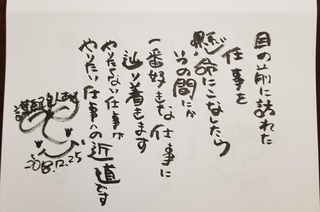 目の前に訪れた
仕事を
懸命にこなしたら
いつの間にか
一番好きな仕事に
辿り着きます
やりたくない仕事が
やりたい仕事への近道です
2018.12.25